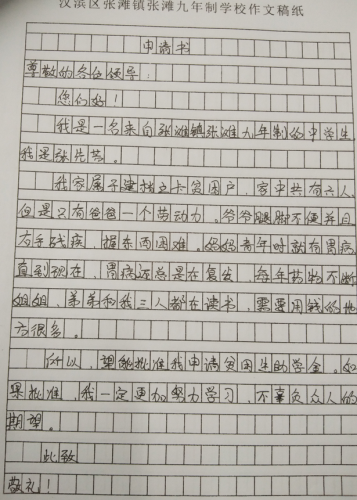 汉滨区张滩镇张滩九年制学校作文稿纸
申请书
尊敬的各位领导:
您们好!
我是一名来自张滩镇张滩九年制的中学生,
我是张先芳。
我家属于建档立卡贫困户,家中共有六人,
但是只有爸爸一个劳动力。爷爷腿脚不便并且
右手残疾,搬东西困难。妈妈青年时就有胃病,
直到现在,胃病还总是在复发,每年药物不断,
姐姐、弟弟和我三人都在读书,需要用钱的地
方很多。
所以,望能批准我申请贫困生助学金。如
果批准,我一定更加努力学习,不辜负众人的
期望。
此致
敬礼!